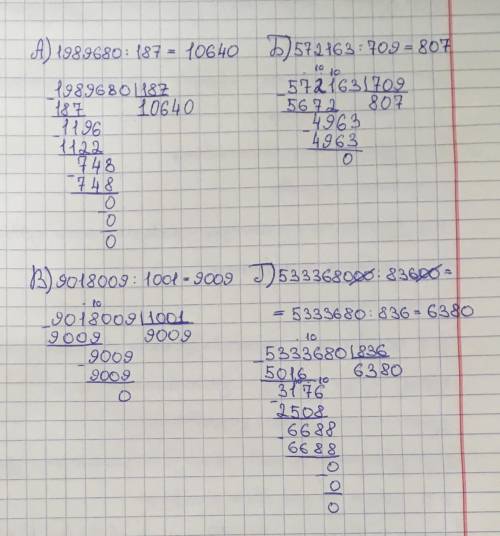 А) 1989680 : 187 = 10640
1989680 | 187
187 10640
- 1196
1122
- 748
748
0
0
0
Б) 572163 : 709 = 807
10 10
- 572163 | 709
5672 807
- 4963
4963
0
В) 9018009 : 1001 = 9009
10
- 9018009 | 1001
9009 9009
- 9009
9009
0
Г) 533368000 : 83600 =
= 5333680 : 836 = 6380
10
- 5333680 | 836
5016 6380
10 10
- 3176
2508
- 6688
6688
0
- 0
0